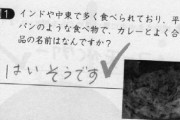 1 インドや中東で多く食べられており、平
パンのような食べ物で、カレーとよく合
品の名前はなんですか？
はい そうです